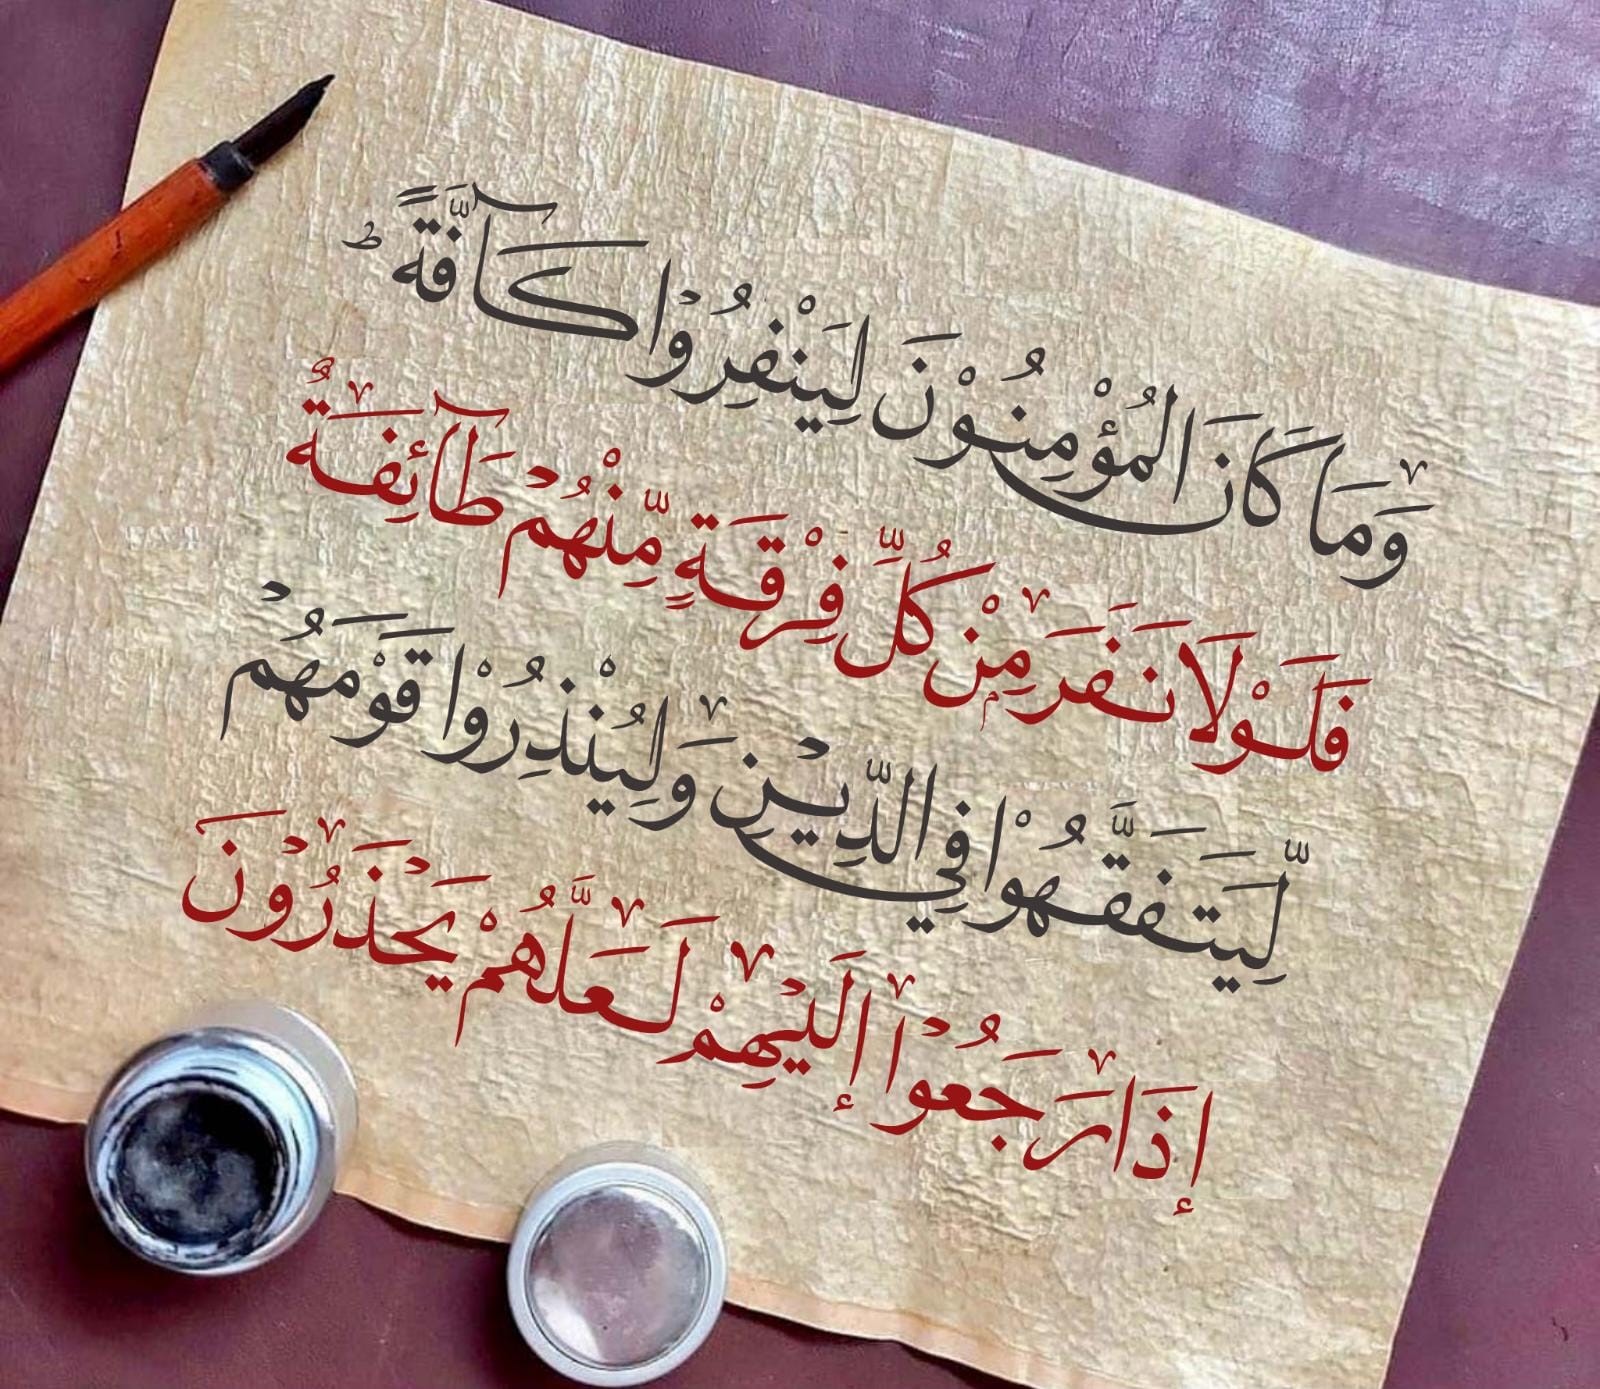 وَمَا كَانَ الْمُؤْمِنُوْنَ لِيَنْفِرُوْا كَآفَّةًؕ
فَلَوْلَا نَفَرَ مِنْ كُلِّ فِرْقَةٍ مِّنْهُمْ طَآئِفَةٌ
لِّيَتَفَقَّهُوْا فِي الدِّيْنِ وَلِيُنْذِرُوْا قَوْمَهُمْ
إِذَا رَجَعُوْا إِلَيْهِمْ لَعَلَّهُمْ يَحْذَرُوْنَ